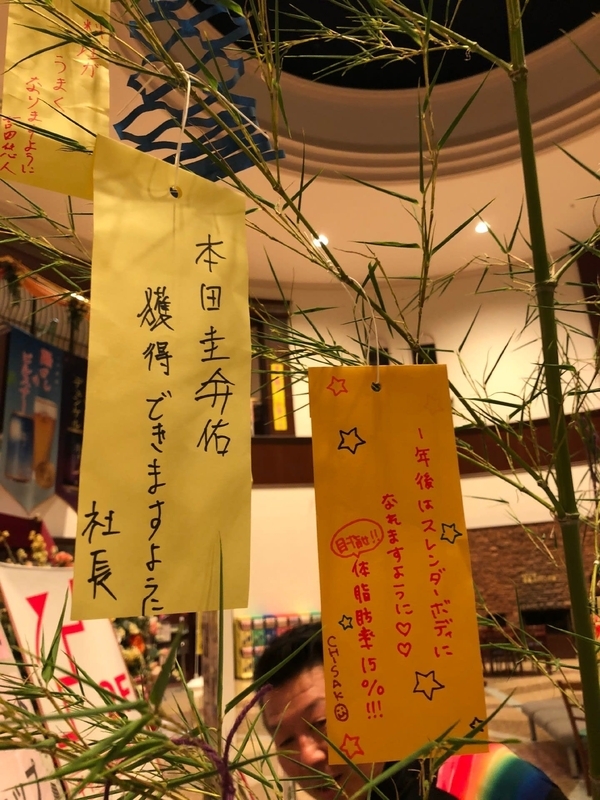 うまく
なりますように
本田圭弁佑
獲得できますように
社長
一年後はスレンダーボディに
なれますように♡♡
目指せ!!
体脂肪率15%!!!
CHISAKO